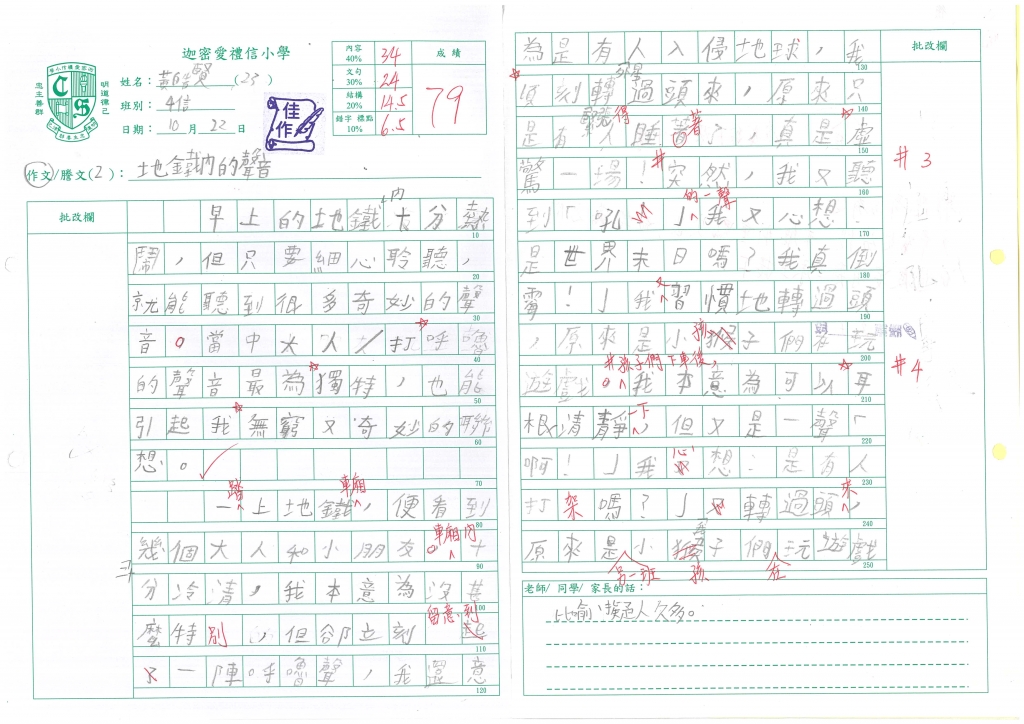 迦密愛禮信小學
姓名：（23）
班別：4信
日期：10月22日
內容 40% 34
文句 30% 24
結構 20% 14.5
錯字 標點 10% 6.5
成績
79
佳作
作文/謄文(2)：地鐵內的聲音
批改欄
早上的地鐵十分熱
內
10
鬧，但只要細心聆聽，
20
就能聽到很多奇妙的聲
30
音。當中大人打呼嚕
40
的聲音最為獨特，也能
50
引起我無窮又奇妙的聯
60
想。
70
踏 車廂
一上地鐵，便看到
80
車廂內
幾個大人和小朋友。十
90
分冷清，我本意為沒甚
100
留意到
麼特別，但卻立刻起
110
一陣呼嚕聲，我還意
120
批改欄
為是有人入侵地球，我
130
頃刻轉過頭來，原來只
140
得
是有人睡著？，真是虛
150
驚一場！突然，我又聽
160
的一聲
到「吼」我又心想：
170
是世界末日嗎？我真倒
180
霉！」我習慣地轉過頭
190
，原來是小孩子們玩
200
#孩子們下車後，
遊戲。我本意為可以耳
210
根清靜一下，但又是一聲「
220
啊！」我心想：是有人
230
來
打架嗎？」又轉過頭，
240
原來是小孩子們玩遊戲
250
另一班 孩 在
#3
#4
老師/ 同學/ 家長的話：
比喻、擬人欠多。